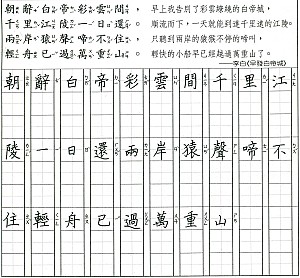 朝辭白帝彩雲間，
千里江陵一日還。
兩岸猿聲啼不住，
輕舟已過萬重山。
早上我告別了彩雲繚繞的白帝城，
順流而下，一天就能到達千里遠的江陵。
只聽到兩岸的猿猴不停的啼叫，
輕快的小船早已經越過萬重山了。
—李白《早發白帝城》
朝辭白帝彩雲間千里江
陵一日還兩岸猿聲啼不
住輕舟已過萬重山